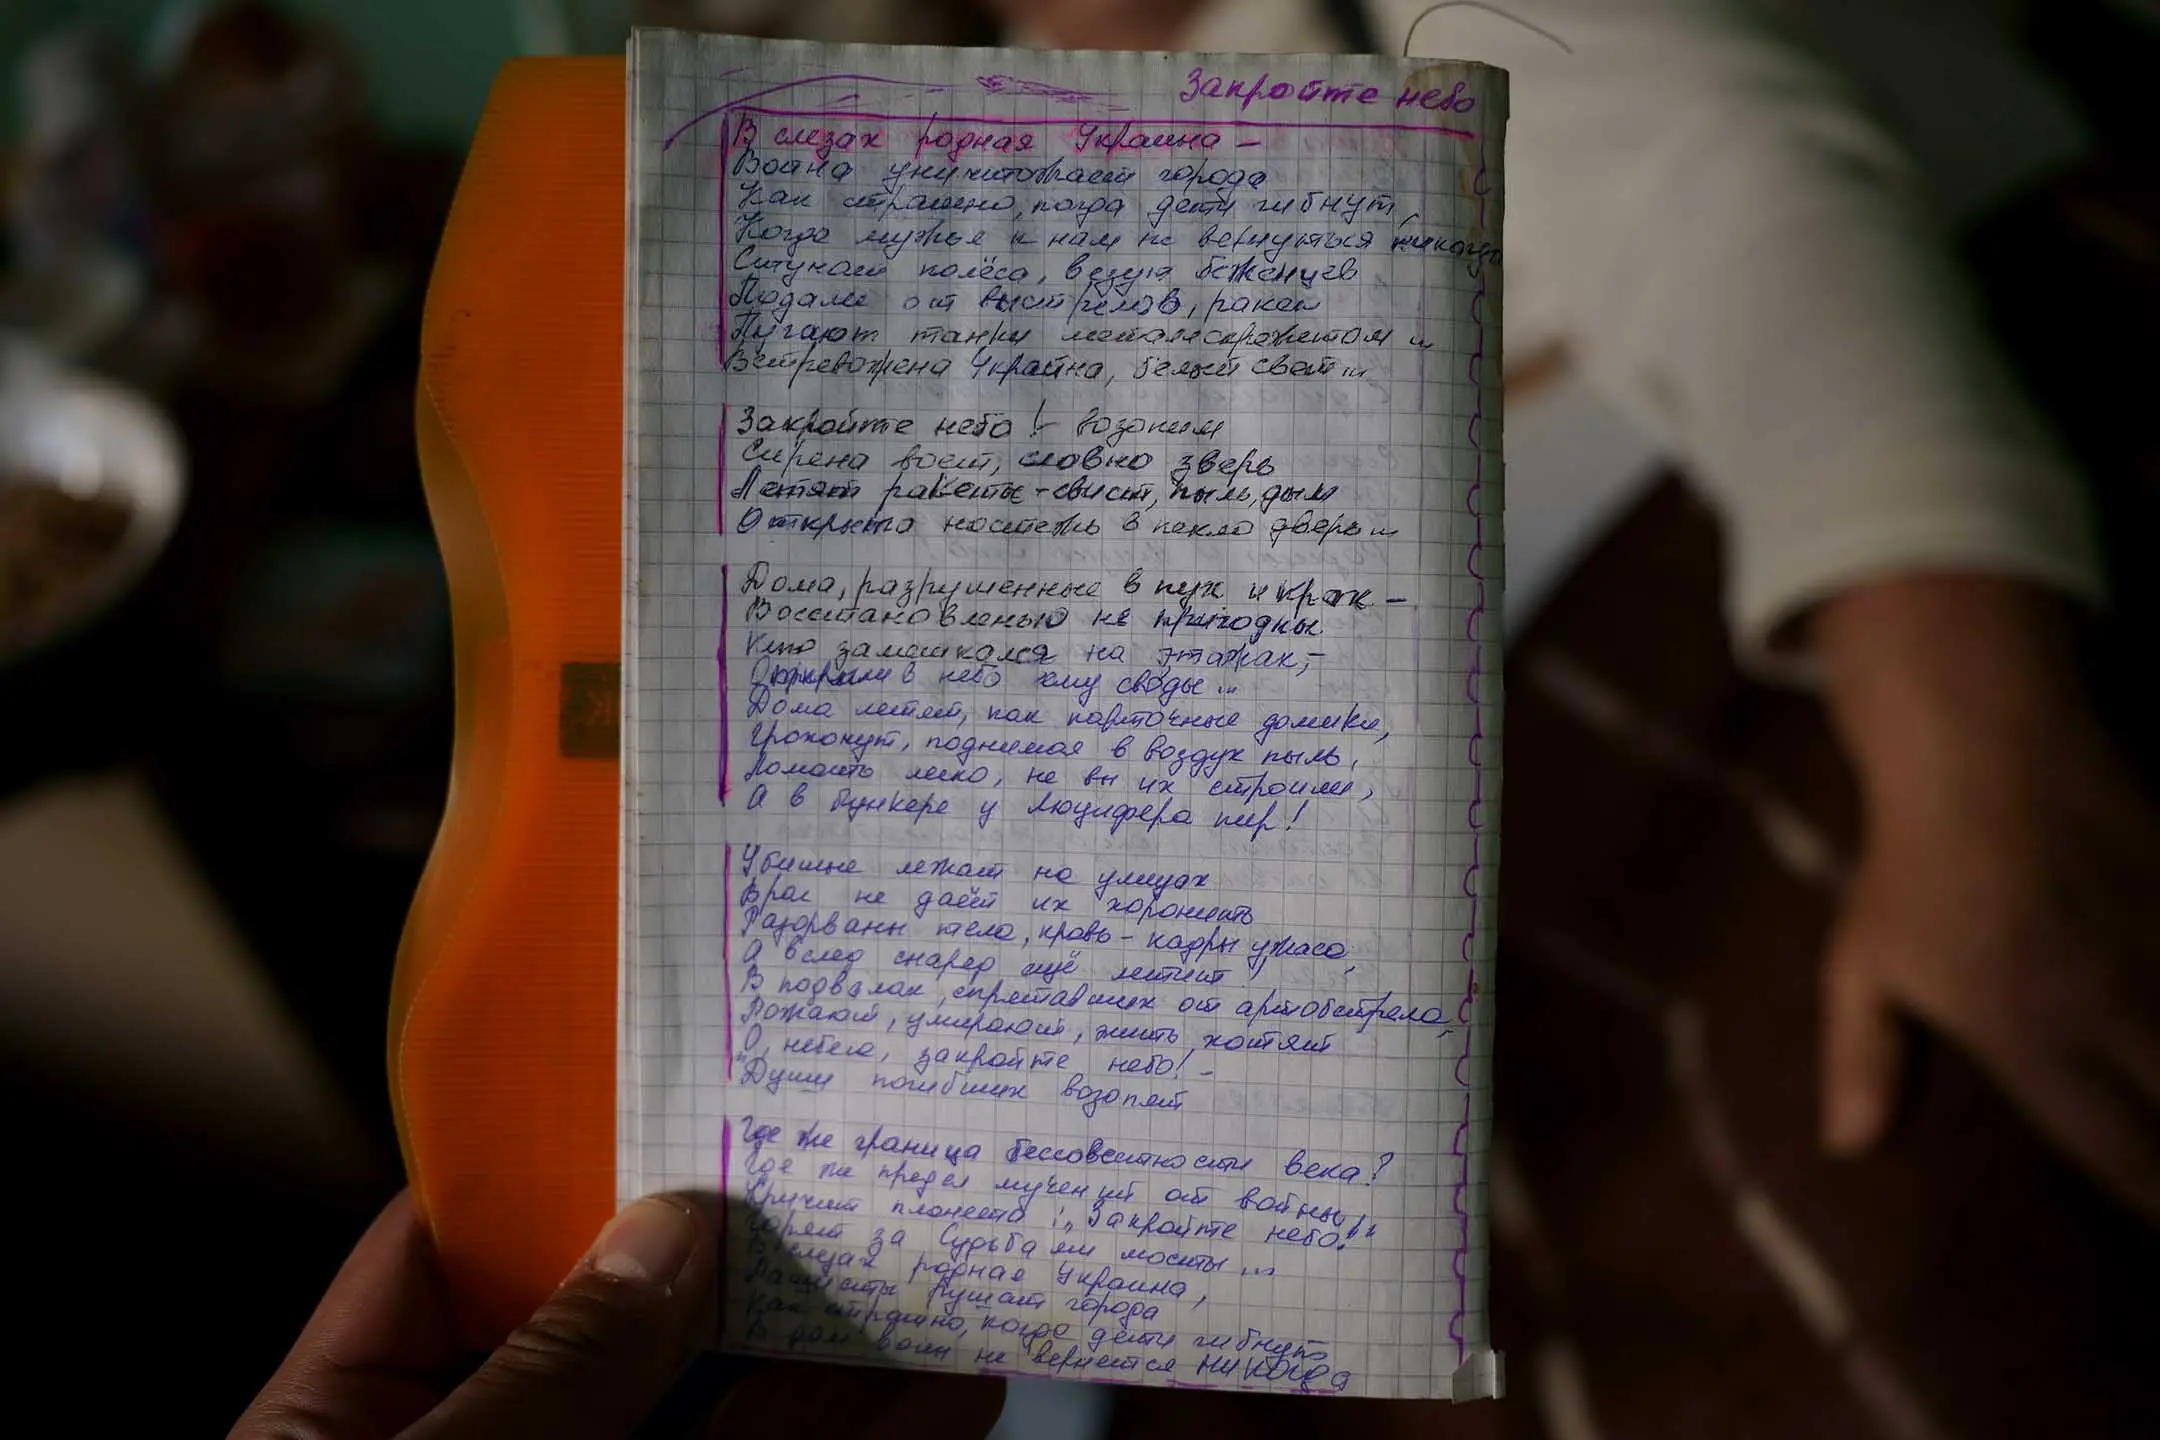 Закройте небо
В слезах родная Украина –
Война уничтожает города
Как страшно, когда дети гибнут,
Когда мужья к нам не вернуться никогда
Стучат колёса, везут беженцев
Подале от выстрелов, ракет
Пугают танки металлоскрежетом ...
Встревожена Украина, белый свет...
Закройте небо! – возопим
Сирена воет, словно зверь
Летят ракеты – свист, пыль, дым
Открыта настежь в пекло дверь...
Дома, разрушенные в пух и прах –
Восстановленью не пригодны
Кто замешкался на этажах, –
Открыли в небо ему своды...
Дома летят, как карточные домики,
Грохочут, поднимая в воздух пыль,
Ломать легко, не вы их строили,
А в бункере у Люцифера пир!
Убитые лежат на улицах
Враг не даёт их хоронить
Разорваны тела, кровь – кадры ужаса,
А вслед снаряд ещё летит!
В подвалах, спрятавших от артобстрела,
Рожают, умирают, жить хотят
"О, небеса, закройте небо! –
Души погибших возопят
Где же граница бессовестности века?
Где же предел мучений от войны
Кричит планета: „Закройте небо!"
Горят за Судьбами мосты ...
В слезах родная Украина,
Рашисты рушат города
Как страшно, когда дети гибнут
В дом воин не вернется НИКОГДА